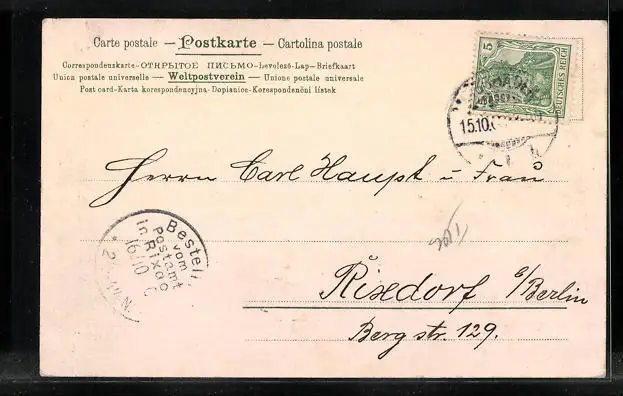 Carte postale — Postkarte — Cartolina postale
Correspondenskarte - ОТКРЫТОЕ ПИСЬМО - Levelező-Lap - Briefkaart
Union postale universelle — Weltpostverein — Unione postale universale
Post card - Karta korespondencyjna - Dopisnice - Korespondenční lístek
5
DEUTSCHES REICH
15.10.
Herrn Carl Haupt u Frau
Bestellt
vom
Postamt
in Rixdo
16/10
N.
Rixdorf b/Berlin
Berg str. 129.